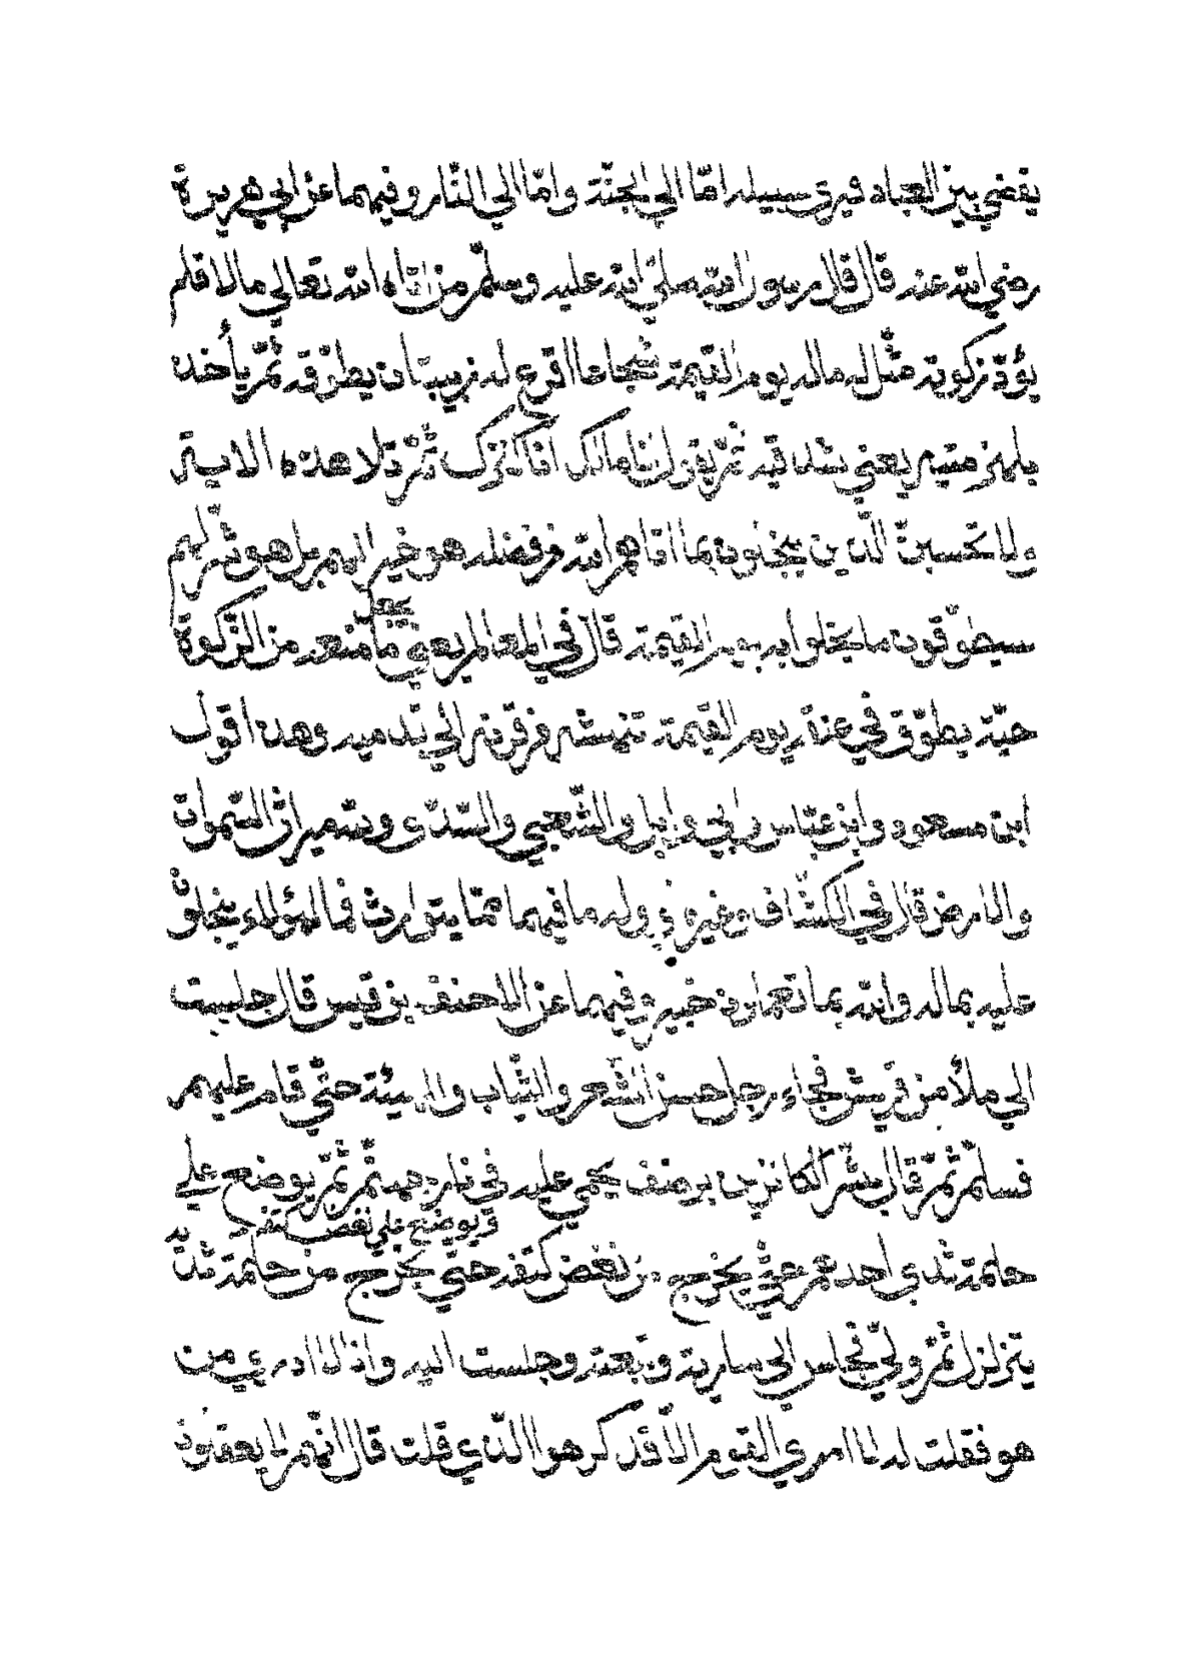 يقضي بين العباد فيري سبيله امّا الي الجنّة وامّا الي النّار وفيهما عن ابي هريرة
رضي الله عنه قال قال رسول الله صلّي الله عليه وسلّم من اتاه الله تعالي مالا فلم
يؤدّ زكوته مثّل له ماله يوم القيمة شجاعا اقرع له زبيبتان يطوّقه ثمّ يأخذه
بلهزمتيه يعني شدقيه ثمّ يقول انا مالك انا كنزك ثمّ تلا هذه الاية
ولا تحسبنّ الّذين يبخلون بما اتاهم الله من فضله هو خير الهم بل هو شرّ لهم
سيطوّقون ما بخلوا به يوم القيمة قال في المعالم يعني يجعل ما منعه من الزّكوة
حيّة يطوّق في عنقه يوم القيمة تنهشه من قرنه الي قدميه وهذا قول
ابن مسعود وابن عبّاس وابي وايل والشّعبي والسّدّي وميراث السّموات
والارض قال في الكشّاف وغيره وله ما فيهما ممّا يتوارث فما لهؤلاء يبخلون
عليه بماله والله بما تعملون خبير وفيهما عن الاحنف بن قيس قال جلست
الي ملأ من قريش فجاء رجل حسن الشّعر والثّياب والهيئة حتّي قام عليهم
فسلّم ثمّ قال بشّر الكانزين برضف يحمي عليه في نار جهنّم ثمّ يوضع علي
حلمة ثدي احدهم حتّي يخرج من نغض كتفه ويوضع علي نغض كتفه حتّي يخرج من حلمة ثديه
يتزلزل ثمّ ولّي فجلس الي سارية وتبعته وجلست اليه وانا لا ادري من
هو فقلت له لا اري القوم الّا قد كرهوا الّذي قلت قال انّهم لا يعقلون